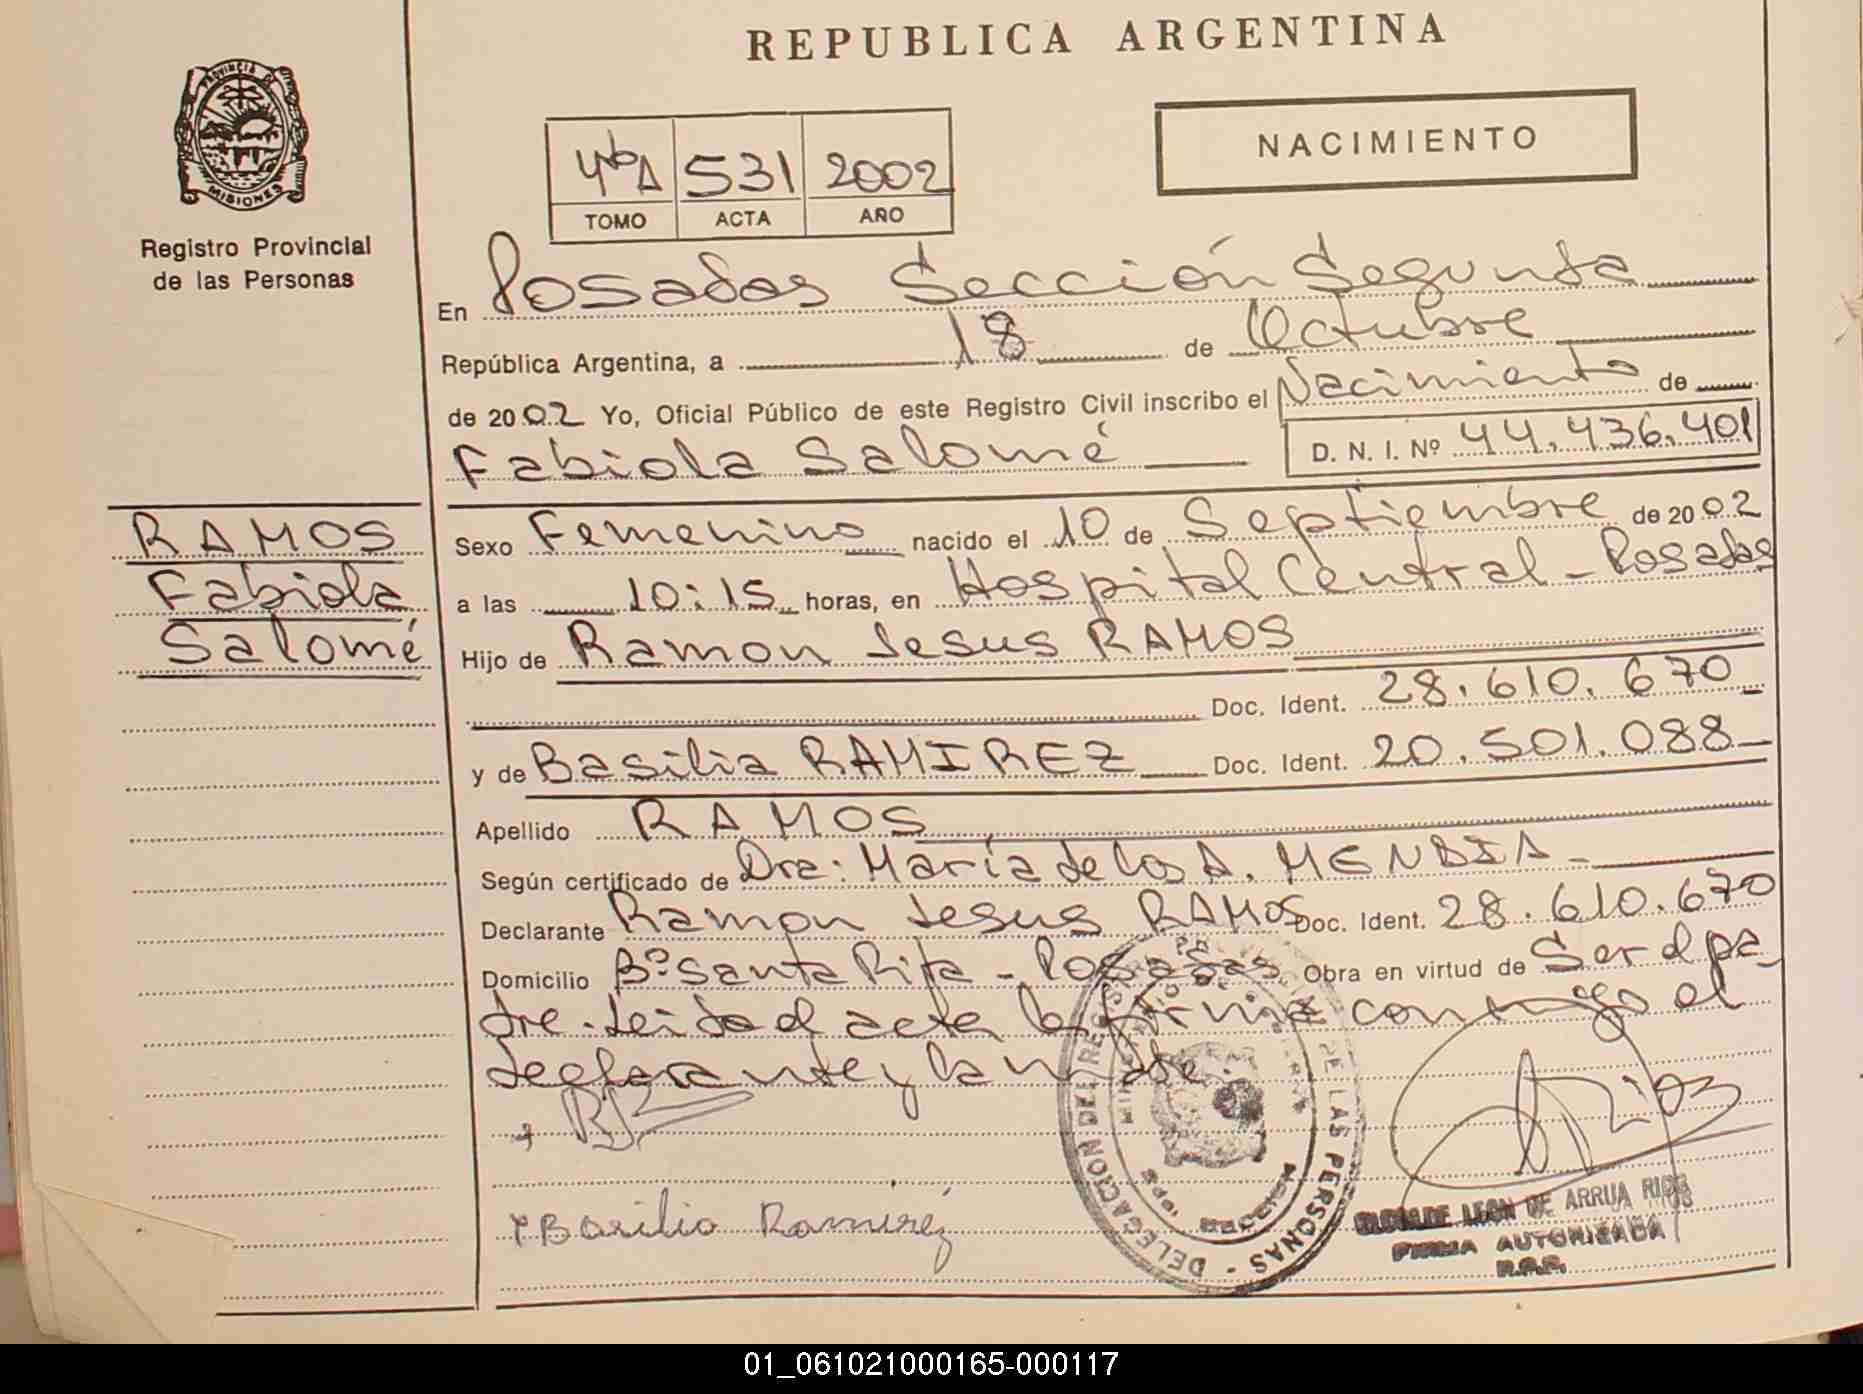 REPUBLICA ARGENTINA
PROVINCIA DE
MISIONES
Registro Provincial
de las Personas
4ºbA 531 2002
TOMO ACTA AÑO
NACIMIENTO
En Posadas Sección Segunda
República Argentina, a 18 de Octubre
de 2002 Yo, Oficial Público de este Registro Civil inscribo el Nacimiento de
Fabiola Salomé D. N. I. Nº 44.436.401
RAMOS
Fabiola
Salomé
Sexo Femenino nacido el 10 de Septiembre de 2002
a las 10:15 horas, en Hospital Central - Posadas
Hijo de Ramon Jesus RAMOS
Doc. Ident. 28.610.670
y de Basilia RAMIREZ Doc. Ident. 20.501.088
Apellido RAMOS
Según certificado de Dra: María de los A. MENDIA
Declarante Ramon Jesus RAMOS Doc. Ident. 28.610.670
Domicilio Bº Santa Rita - Posadas Obra en virtud de Ser el pa
dre - Leida el acta la firma conmigo el
declarante y la madre.
Basilio Ramirez
DELEGACION DEL REGISTRO PROVINCIAL DE LAS PERSONAS
LEON DE ARRUA RIOS
FIRMA AUTORIZADA
R.P.P.
01_061021000165-000117